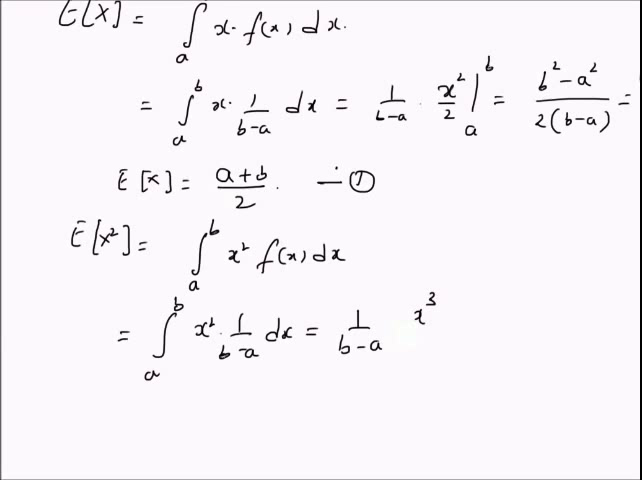 E[X] = ∫ₐ x· f(x) dx.
= ∫ₐᵇ x· 1/(b-a) dx = 1/(b-a) · x²/2 |ₐᵇ = (b²-a²)/(2(b-a)) =
E[X] = (a+b)/2. —①
E[X²] = ∫ₐᵇ x² f(x) dx
= ∫ₐᵇ x²· 1/(b-a) dx = 1/(b-a) x³